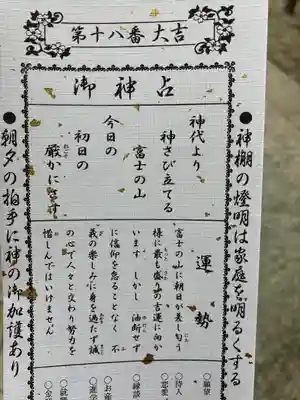 第十八番 大吉
御神占
●神棚の燈明は家庭を明るくする
神代より
神さび立てる
富士の山
今日の
初日の
厳かにさす
運勢
富士の山に朝日が差し匂う
様に最も盛んな吉運に向か
います しかし 油断せず
に信仰を怠ることなく 不
義の楽しみに身を過たず誠
の心で人々と交わり努力を
惜しんではいけません
○願望
○待人
○恋愛
○縁談
○お産
●朝夕の拍手に神の御加護あり